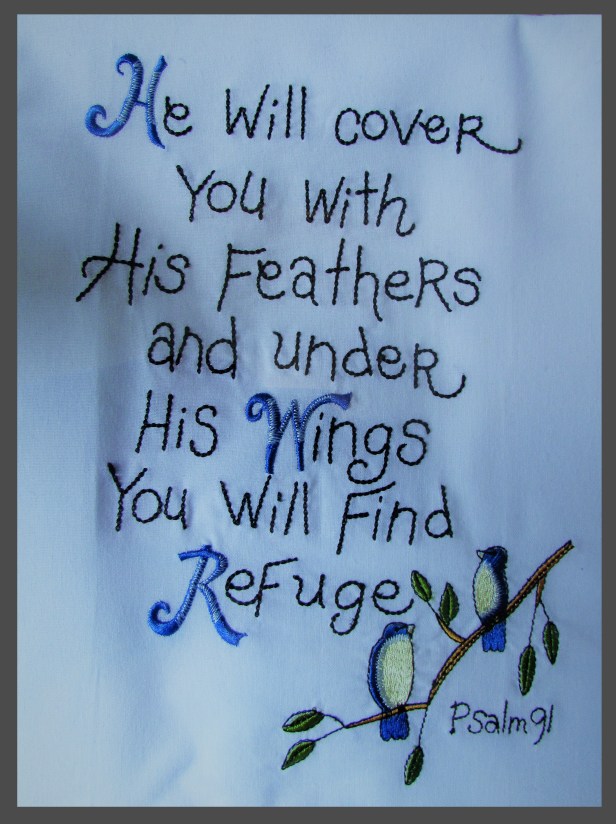 He Will cover
You With
His Feathers
and under
His Wings
You Will Find
Refuge
Psalm 91